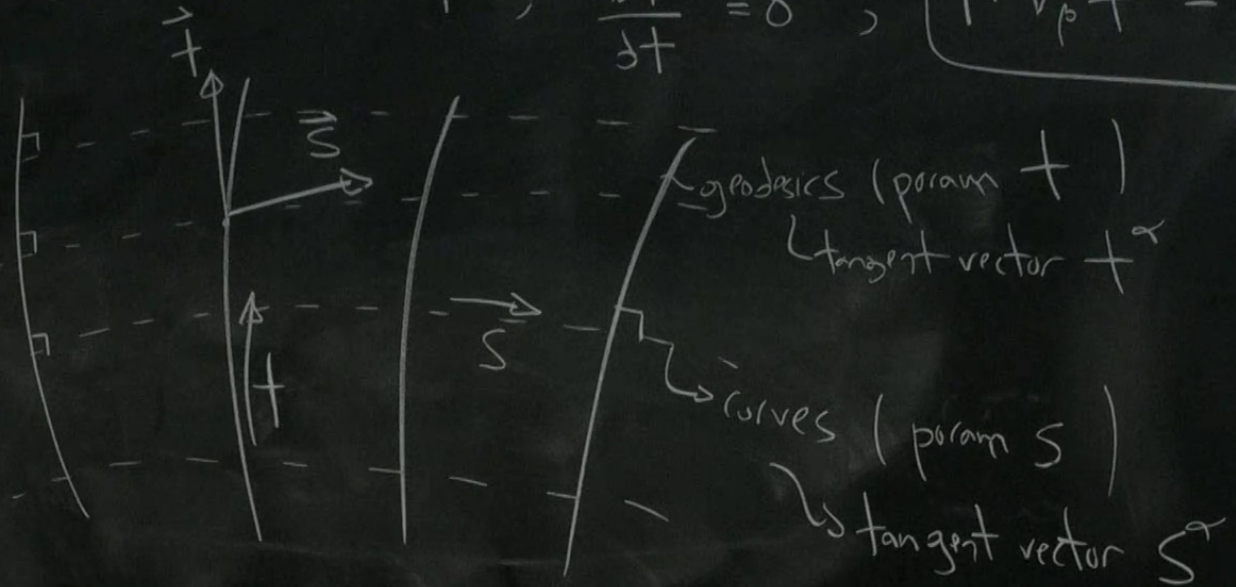 t
dt = 0 ,
S
geodesics (param t)
tangent vector t^α
t
S
curves (param s)
tangent vector S^α